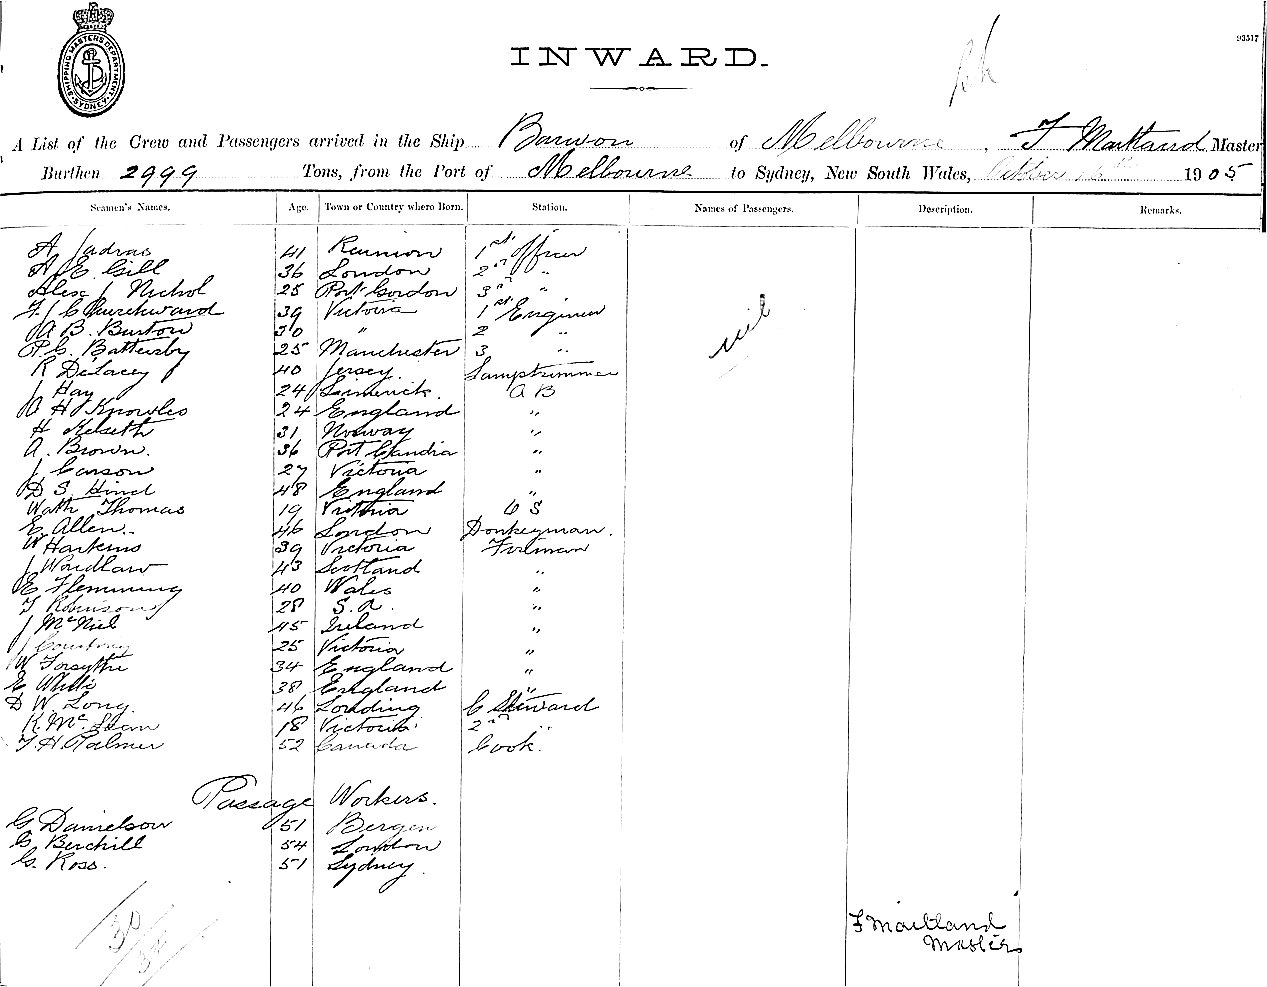 SHIPPING MASTERS DEPARTMENT SYDNEY
93517
INWARD.
A List of the Crew and Passengers arrived in the Ship Barwon of Melbourne, F Maitland Master
Burthen 2999 Tons, from the Port of Melbourne to Sydney, New South Wales, October 1905
Seamen's Names. Age. Town or Country where Born. Station. Names of Passengers. Description. Remarks.
A Jadras 41 Reunion 1st Officer
A E Gill 36 London 2nd "
Alex J Nichol 25 Port Gordon 3rd "
F J Churchward 39 Victoria 1st Engineer
A B. Burton 30 " 2 "
P. C. Battersby 25 Manchester 3 "
nil
R DeLacey 40 Jersey Lamptrimmer
J Hay 24 Limerick. A B
A H Knowles 24 England "
H Melseth 31 Norway "
A. Brown. 36 Port Candia "
J Carson 27 Victoria "
D S. Hind 48 England "
Watk Thomas 19 Victoria O S
E Allen 46 London Donkeyman.
W Harkins 39 Victoria Fireman
J Wardlaw 43 Scotland "
E Flemming 40 Wales "
T Robinson 28 S. A. "
J McNiel 45 Ireland "
J Courtney 25 Victoria "
W Forsythe 34 England "
E White 38 England "
D W. Long. 46 C Steward
K. McLean 18 Victoria 2nd "
T. H. Palmer 52 Canada Cook.
Passage Workers.
G Danielson 51 Bergen
G. Berchill 54 London
G. Ross. 51 Sydney
30
F Maitland
Master